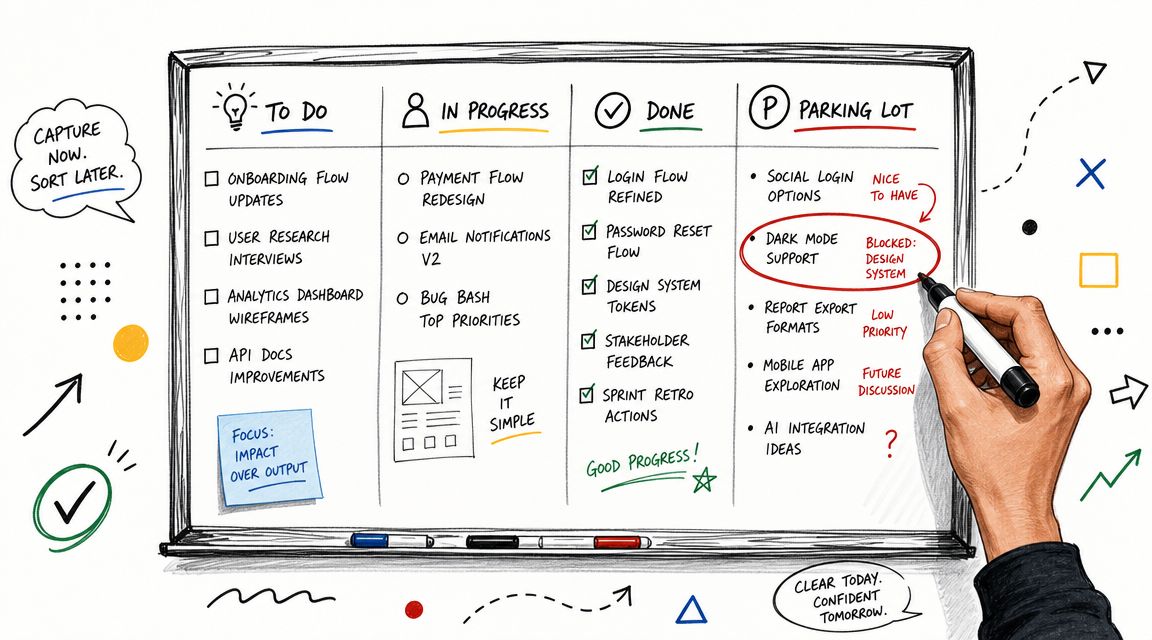 CAPTURE
NOW.
SORT LATER.
TO DO
ONBOARDING FLOW
UPDATES
USER RESEARCH
INTERVIEWS
ANALYTICS DASHBOARD
WIREFRAMES
API DOCS
IMPROVEMENTS
FOCUS:
IMPACT
OVER OUTPUT
IN PROGRESS
PAYMENT FLOW
REDESIGN
EMAIL NOTIFICATIONS
V2
BUG BASH
TOP PRIORITIES
KEEP
IT
SIMPLE
DONE
LOGIN FLOW
REFINED
PASSWORD RESET
FLOW
DESIGN SYSTEM
TOKENS
STAKEHOLDER
FEEDBACK
SPRINT RETRO
ACTIONS
GOOD PROGRESS!
P
PARKING LOT
SOCIAL LOGIN
OPTIONS
NICE
TO HAVE
DARK MODE
SUPPORT
BLOCKED:
DESIGN
SYSTEM
REPORT EXPORT
FORMATS
LOW
PRIORITY
MOBILE APP
EXPLORATION
FUTURE
DISCUSSION
AI INTEGRATION
IDEAS
?
CLEAR TODAY.
CONFIDENT
TOMORROW.